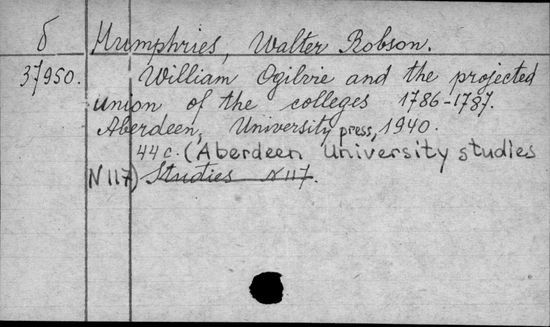 б Humphries, Walter Robson.
37950. William Ogilvie and the projected
union of the colleges 1786-1787.
Aberdeen, University press, 1940.
44 c. (Aberdeen University studies
N 117) Studies N 117.